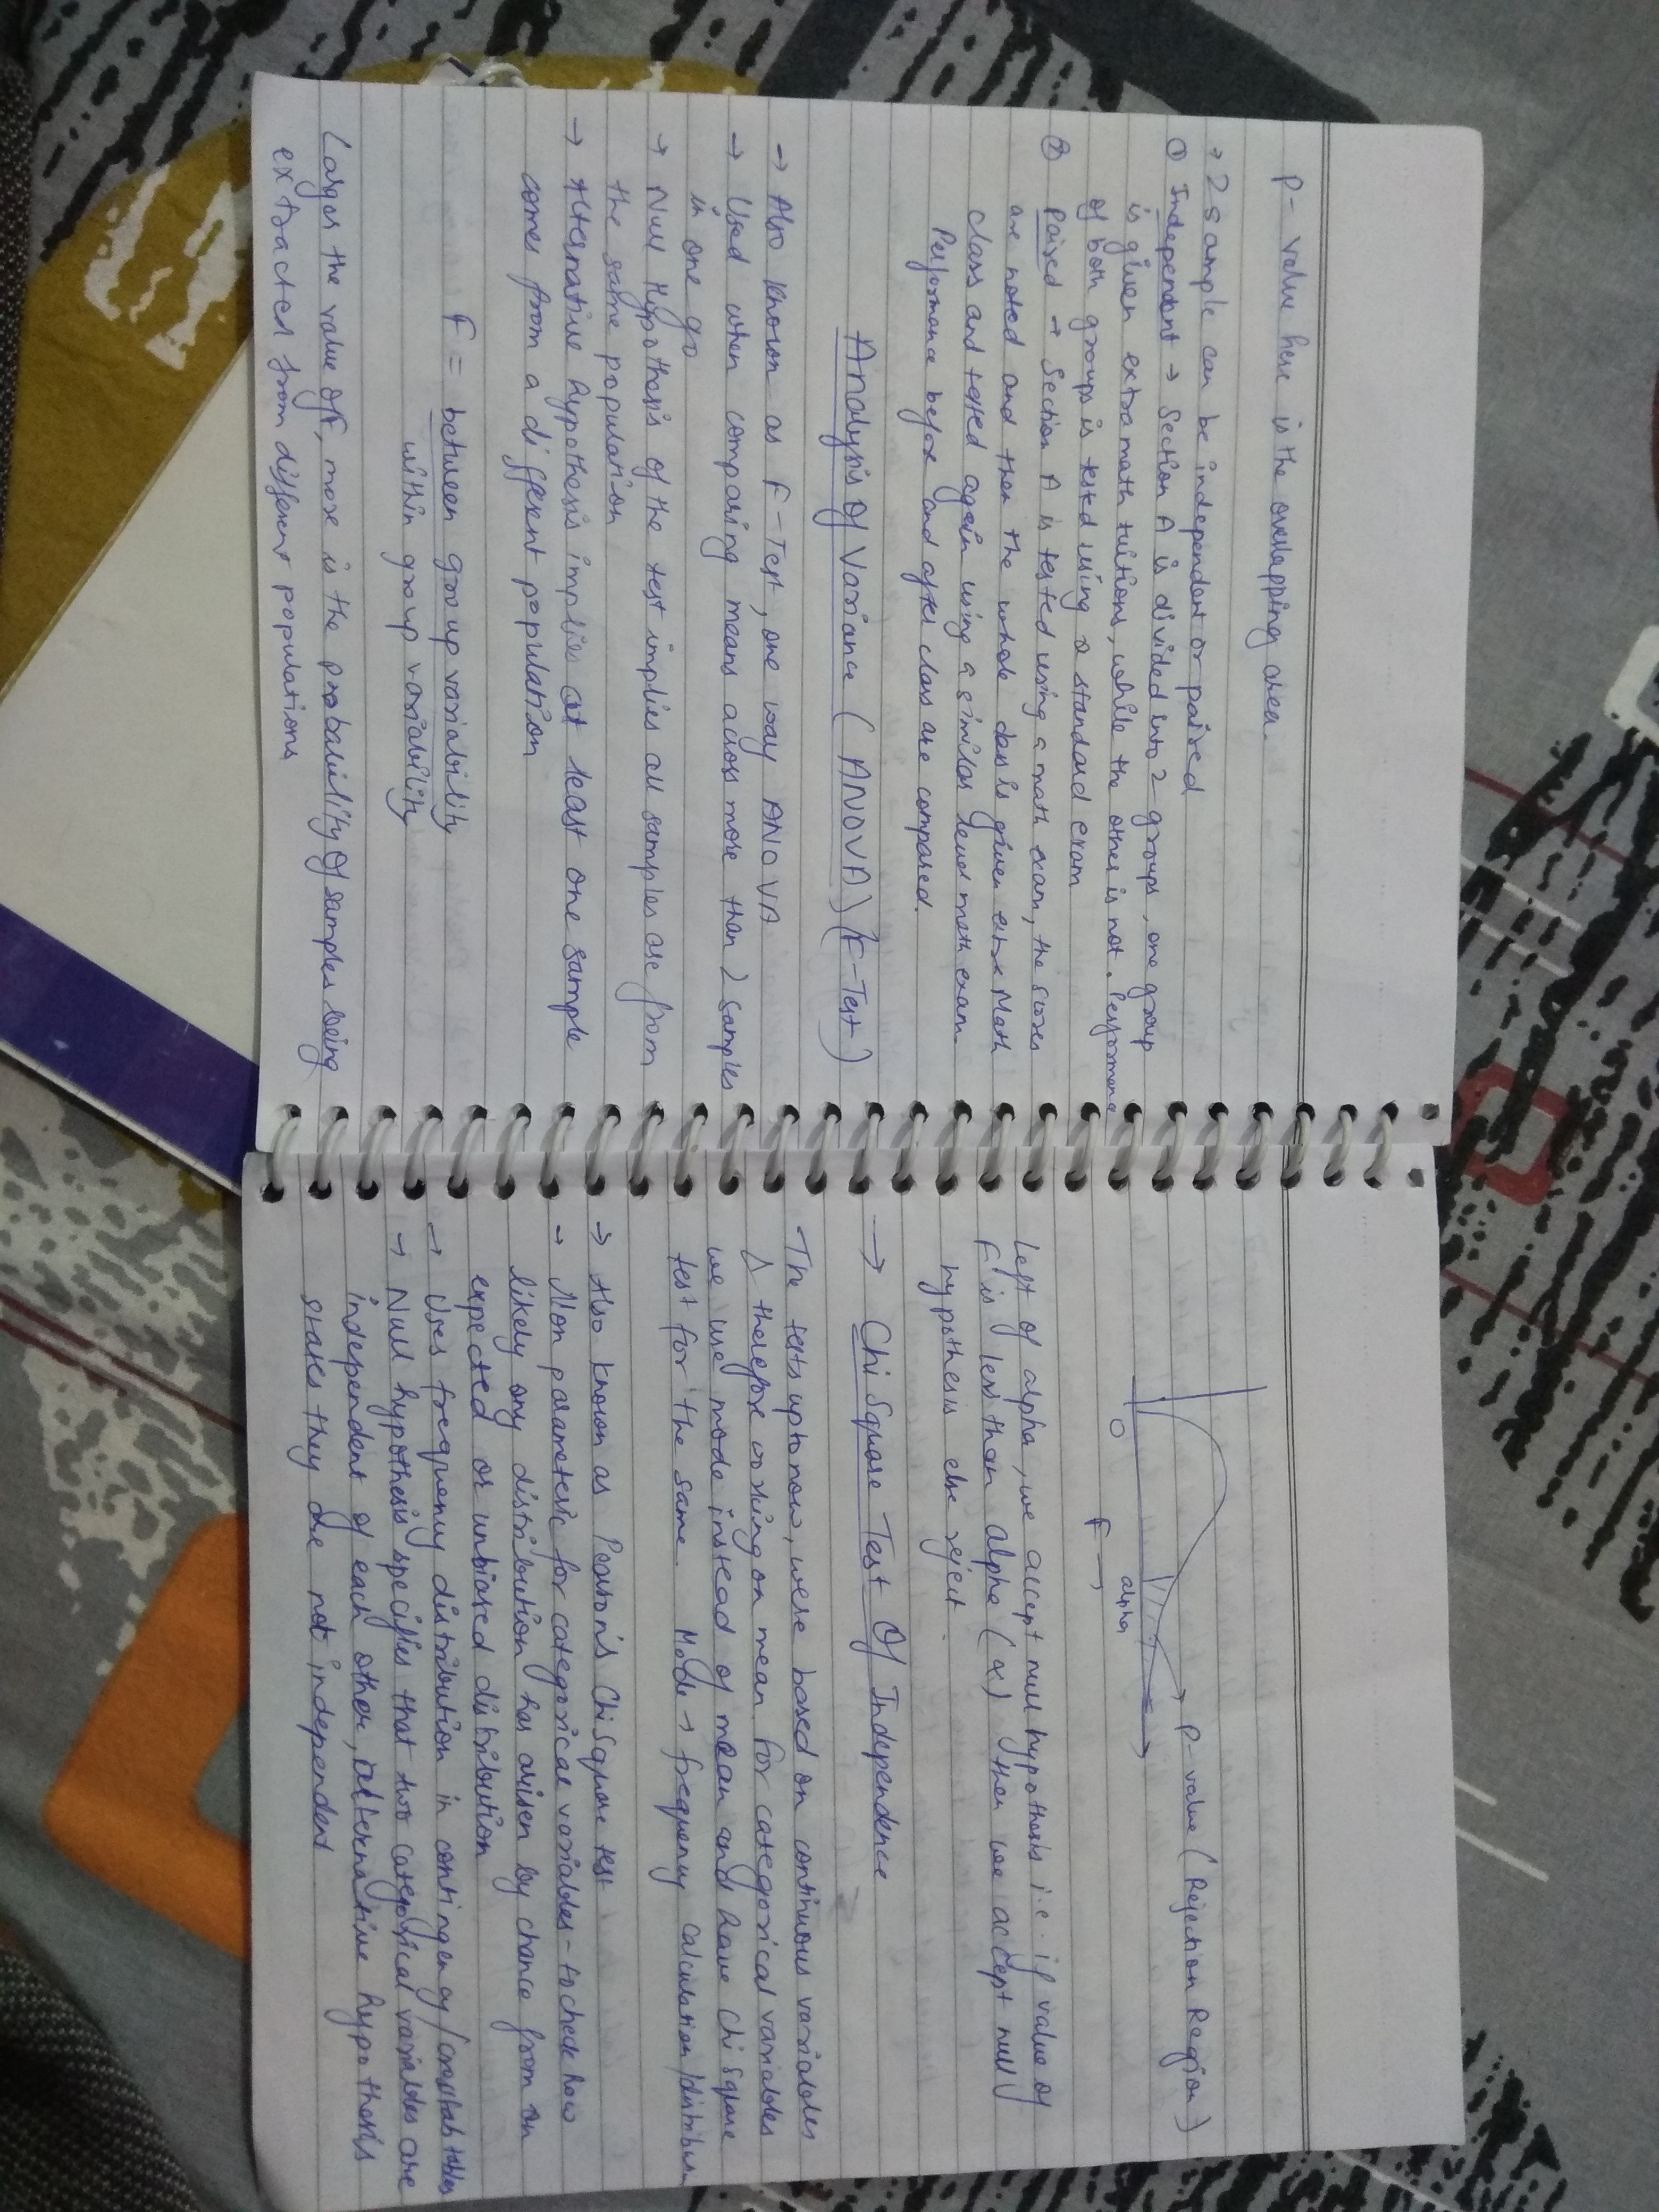 P- value here is the overlapping area.
→ 2 sample can be independent or paired
① Independent → Section A is divided into 2 groups, one group
is given extra math tuitions, while the other is not. Performance
of both groups is tested using a standard exam
② Paired → Section A is tested using a math exam, the scores
are noted and then the whole class is given extra Math
class and tested again using a similar level math exam.
Performance before and after class are compared.
Analysis Of Variance (ANOVA) (F-Test)
→ Also known as F-Test, one way ANOVA
→ Used when comparing means across more than 2 samples
in one go
→ Null Hypothesis of the test implies all samples are from
the same population
→ Alternative hypothesis implies at least one sample
comes from a different population
F = between group variability
within group variability
Larger the value of F, more is the probability of samples being
extracted from different populations
P-value (Rejection Region)
0 alpha
F →
Left of alpha, we accept null hypothesis i.e. if value of
F is less than alpha (α) then we accept null
hypothesis else reject.
→ Chi Square Test Of Independence
The tests upto now, were based on continuous variables
& therefore working on mean. For categorical variables
we use mode instead of mean and have chi square
test for the same. Mode → frequency calculation/distribution
→ Also known as Pearson's Chi Square test
→ Non parameteric for categorical variables - to check how
likely any distribution has arisen by chance from an
expected or unbiased distribution
→ Uses frequency distribution in contingency/crosstab tables
→ Null hypothesis specifies that two categorical variables are
independent of each other, alternative hypothesis
states they are not independent